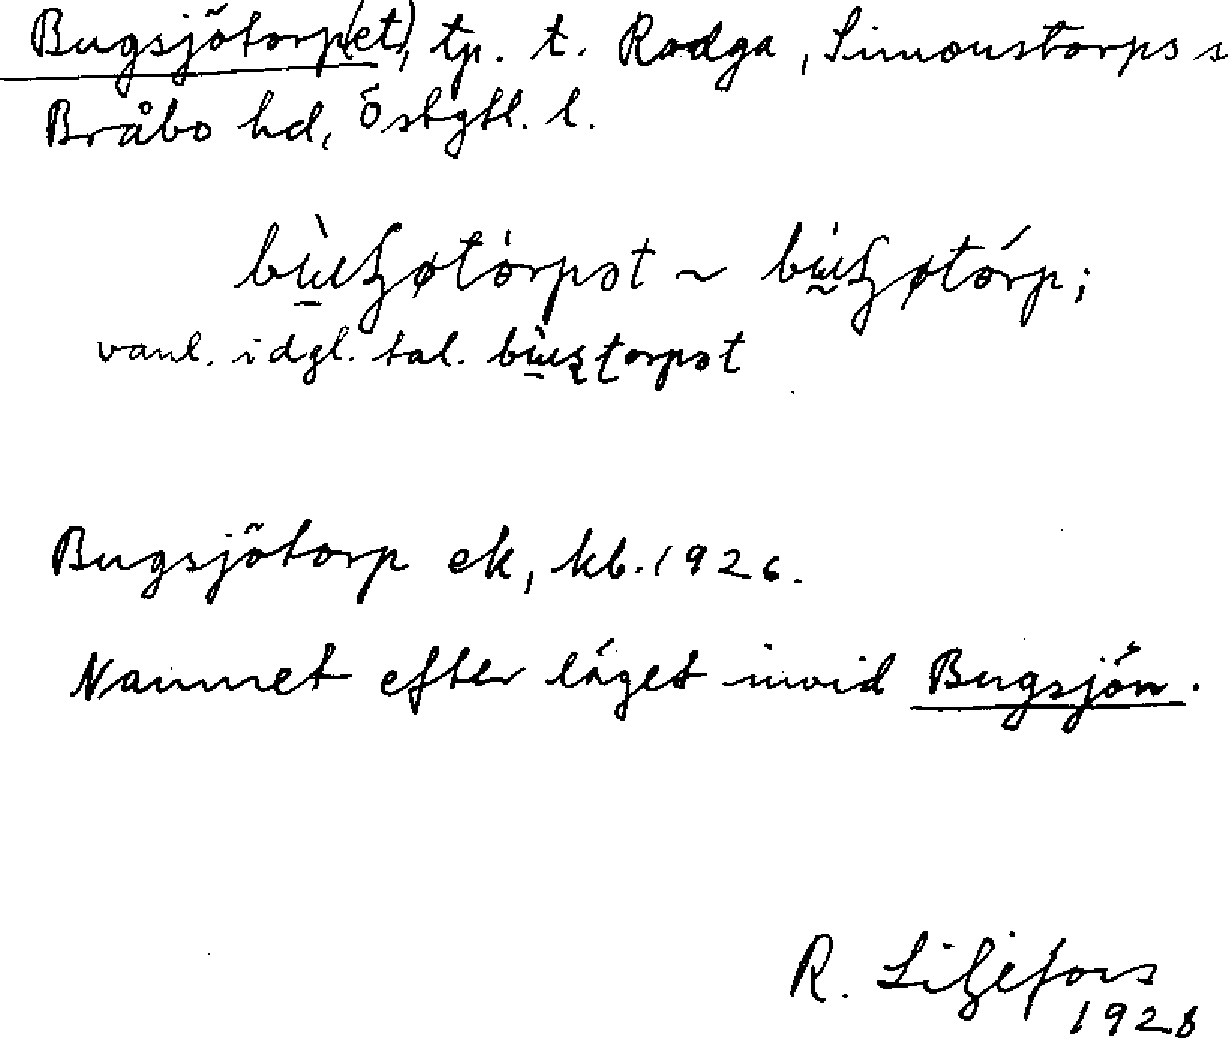 Bugsjötorp(et), tp. t. Rodga, Simonstorps s
Bråbo hd, Östgtl. l.
vanl. i dgl. tal.
Bugsjötorp ek, kb. 1926.
Namnet efter läget invid Bugsjön.
R. Liljefors
1928